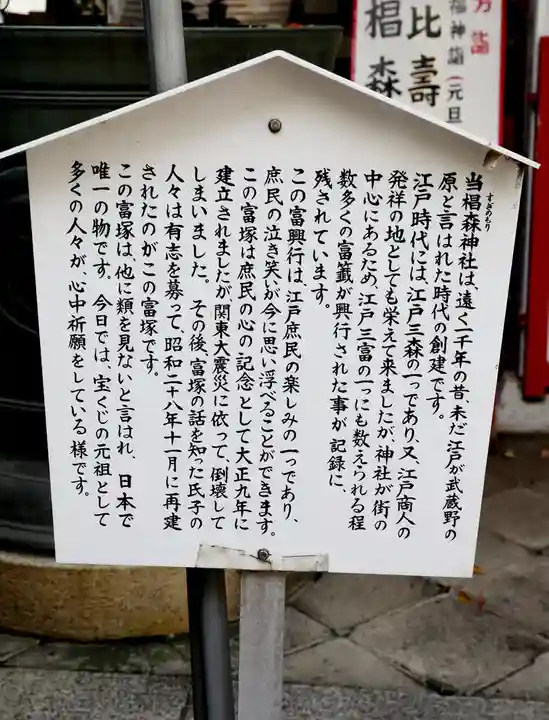 当椙森神社は、遠く一千年の昔、未だ江戸が武蔵野の
すぎのもり
原と言はれた時代の創建です。
江戸時代には、江戸三森の一つであり、又、江戸商人の
発祥の地としても栄えて来ましたが、神社が街の
中心にあるため、江戸三富の一つにも数えられる程
数多くの富籤が興行された事が記録に、
残されています。
この富興行は、江戸庶民の楽しみの一つであり、
庶民の泣き笑いが今に思い浮べることができます。
この富塚は庶民の心の記念として大正九年に
建立されましたが、関東大震災に依って、倒壊して
しまいました。その後、富塚の話を知った氏子の
人々は有志を募って、昭和二十八年十一月に再建
されたのがこの富塚です。
この富塚は、他に類を見ないと言はれ、日本で
唯一の物です。今日では、宝くじの元祖として
多くの人々が、心中祈願をしている様です。
方詣
福神詣(元旦
比壽
椙森